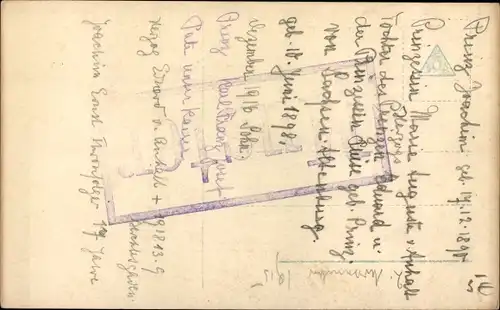 Prinz Joachim geb. 17.12.1890
Prinzessin Marie Auguste v. Anhalt
Tochter des Herzogs Eduard u.
der Prinzessin Luise geb. Prinz.
von Sachsen-Altenburg.
geb. 10. Juni 1898.
Dezember 1916 Sohn:
Prinz Karl Franz Josef
Pate unser Kaiser
Herzog Eduard v. Anhalt + 1918 13.9
Berchtesgaden.
Joachim Ernst Thronfolger 17 Jahre